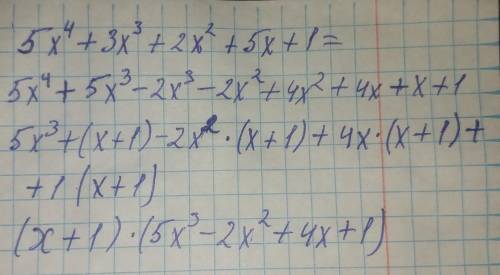 5x⁴ + 3x³ + 2x² + 5x + 1 =
5x⁴ + 5x³ - 2x³ - 2x² + 4x² + 4x + x + 1
5x³ + (x+1) - 2x² · (x+1) + 4x · (x+1) +
+ 1 (x+1)
(x+1) · (5x³ - 2x² + 4x + 1)